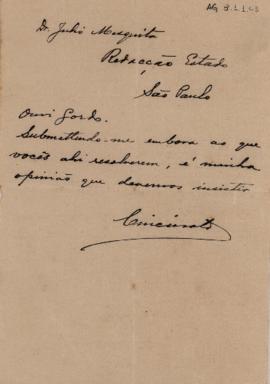 AG 3.1.1.
Dr. Julio Mesquita
Redacção Estado
São Paulo
Ouvi Gordo.
Submettendo-me embora ao que
vocês ahi resolverem, é minha
opinião que devemos insistir
Cincinato